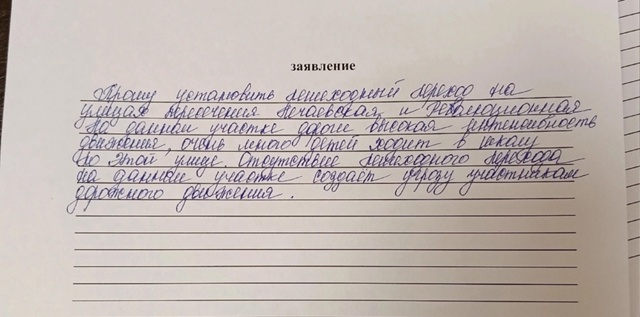 заявление
Прошу установить пешеходный переход на
улицах пересечения Нечаевская и Революционная
На данном участке дороги высокая интенсивность
движения, очень много детей ходит в школу
по этой улице. Отсутствие пешеходного перехода
на данном участке создаёт угрозу участникам
дорожного движения.